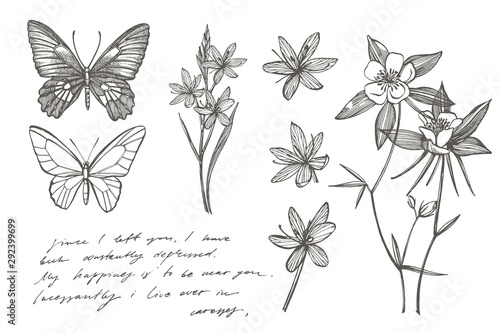 Since I left you, I have
but constantly depressed.
My happiness is to be near you.
Incessantly i live over in
caresses,
Adobe Stock | #292399699